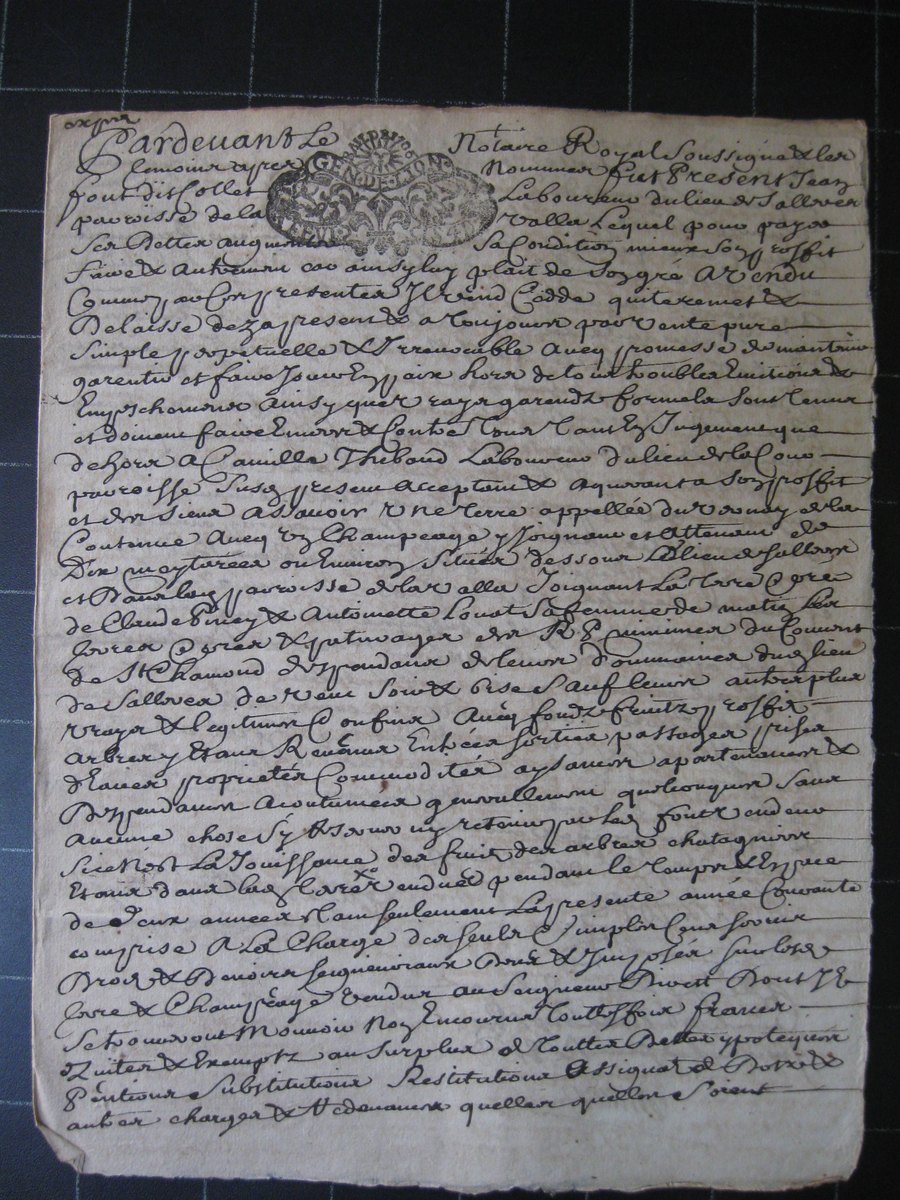 Pardevant Le Notaire Royal Soussigné & les
temoins apres Nommes fut Present Jean
font dit Collet Laboureur du lieu de Salleres
parroisse de la Valla Lequel pour payer
Ses Dettes augmenter Sa Condition mieux Son proffit
faire & Autrement car ainsy luy plait de Son gré A vendu
Comme par Ces presentes Il vend Cedde quitte remet &
Delaisse dez a present & a toujours par vente pure
Simple perpetuelle & Irrevocable Avec promesse de maintenir
garentir et faire Jouir En paix hors de tous troubles Evictions &
Empechemens Ainsy que vrays garends formels sont tenus
et doivent faire Envers & Contre Tous Tant En Jugement que
dehors A Camille Thibaud Laboureur du lieu de la
parroisse present acceptant & aquerant a Son proffit
et des siens Assavoir Une Terre appellée du vernay de la
Contenue Avec Un Champeage y Joignant et Attenant de
Dix meyterées ou Environ Scituée dessous Ledit lieu de Salleres
et Dans lad parroisse de la valla Joignant La terre & pré
de Claude & Antoinette Sa femme de matin Les
terres & pres & paturages des R P minimes du Couvent
de St Chamond dependans de leurs Dommaines dud lieu
de Salleres de vent Soir & bise Sauf leurs autres plus
vrays & legitimes Confins Avec fonds fruits proffits
arbres y Etans Revenus Entrées sorties passages prises
d'Eaux proprietés Commodités aysances apartenances &
Dependances acoutumées generallement quelconques Sans
aucune chose S'y reserver ny retenir par led font vendeur
Si ce N'est La Jouissance des fruits des arbres chataigniers
Etans dans lad terre vendue pendant le temps & Espace
de deux années tant seulement La presente année Courante
comprise A La Charge des seuls & simples Cens servis
Droits & Devoirs Seigneuriaux Deus & Imposés sur lesd
terre & Champéage vendus au Seigneur Direct Dont Ils
Se trouveront Mouvoir Non Encourus Touttesfois francs
Quittes & Exempts au Surplus de Touttes Dettes ypoteques
Pentions Substitutions Restitutions Assignat de Dotte &
autres charges & redevances quelles quelles Soient